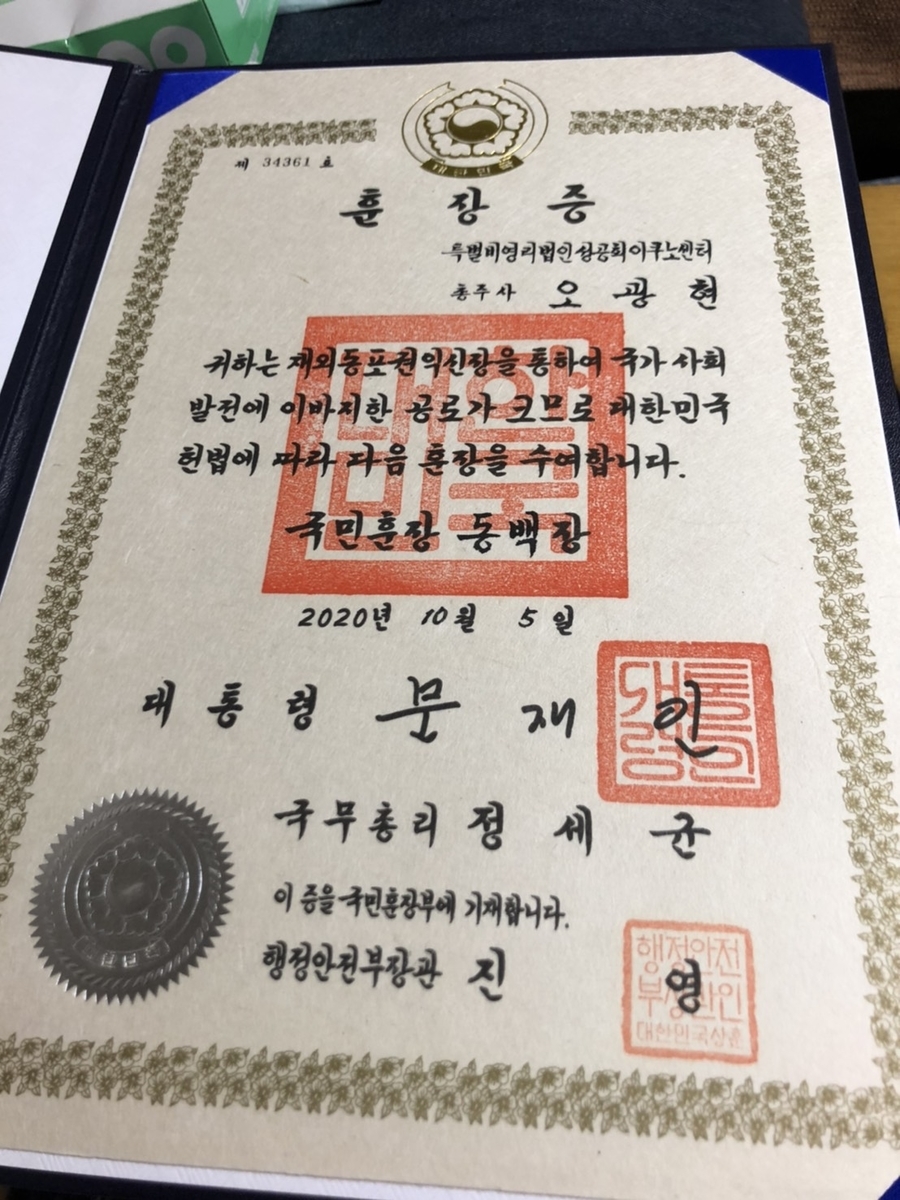 대한민국
제 34361 호
훈장증
특별비영리법인성공회이쿠노센터
총주사 오광현
귀하는 재외동포권익신장을 통하여 국가 사회
발전에 이바지한 공로가 크므로 대한민국
헌법에 따라 다음 훈장을 수여합니다.
대한민국
국민훈장 동백장
2020년 10월 5일
대통령 문재인
국무총리 정세균
이 증을 국민훈장부에 기재합니다.
행정안전부장관 진영
행정안전
부장관인
대한민국상훈